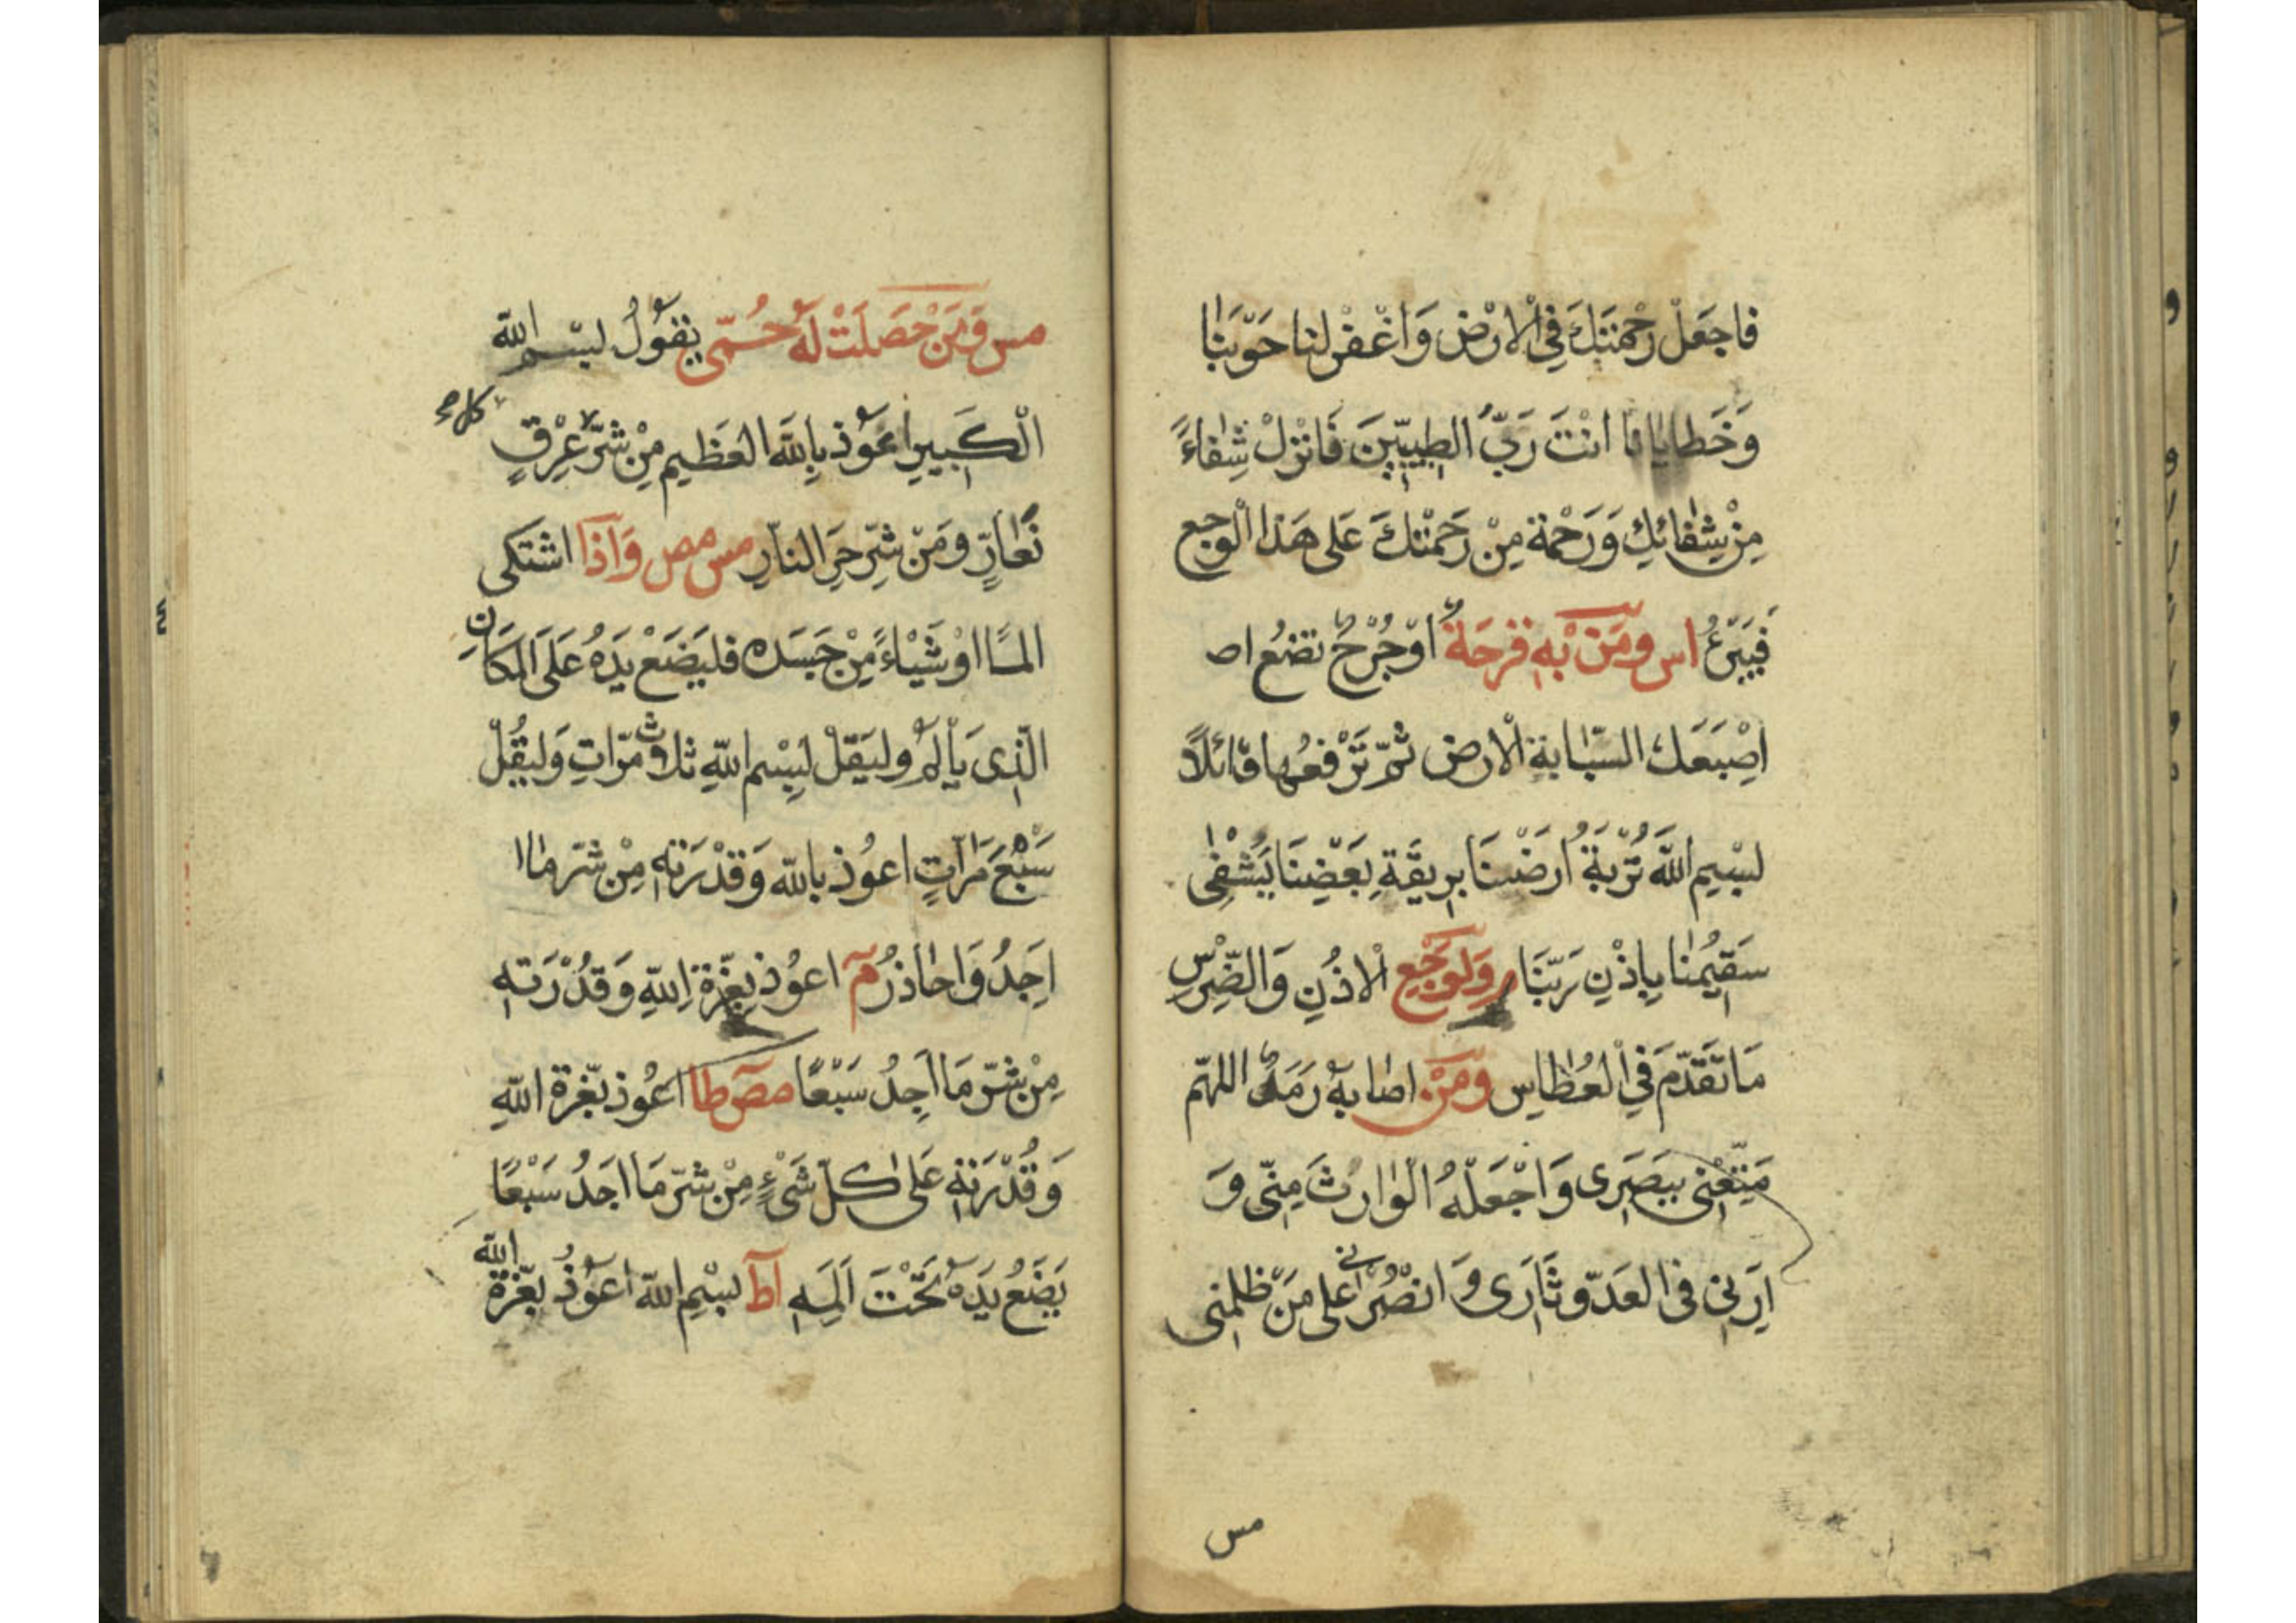 فاجعَلْ رَحْمَتَكَ فِي الْاَرْضِ وَاغْفِرْ لَنا حَوْبَنا
وَخَطايانا انْتَ رَبُّ الطيِّبِينَ فَانْزِلْ شِفاءً
مِنْ شِفائِكَ وَرَحْمة مِنْ رَحمْتِكَ عَلى هَذا الْوجع
فَيَبْرَءُ اس ومَنْ بْهِ قرحَة اوْ جُرْحٌ تضعُ اص
اِصْبَعَك السَبّابة الْارض ثمّ تَرْفعُها قائلاً
بسْمِ اللهِ تُرْبة اَرَضْنا برِيقَةِ بَعْضِنَا يُشْفٰى
سَقيُمنا بِاِذْنِ رَبّنَا م وَلوَجَعِ الْاذُنِ وَالضِّرْس
مَا تَقَدّمَ في الْعُطاس ومَنْ اصابهُ رَمَدٌ اللهمّ
مَتِّعْنى ببَصَرِى وَاجْعَلْهُ الْوٰارثَ مِنّى وَ
اَرِنى فى العَدوّ ثَارى وَ انصُرْنى على مَنْ ظلمنى
مس
مس وَمَنْ حَصَلَتْ لَهُ حُمّى يقوُلُ بسْم الله
الْكبيرِ اعوُذ بِاللهِ العَظيم مِنْ شَرّ عِرْقٍ كل م
نَعّارٍ ومَنْ شَرّ حَرِّ النّارِ مس مص وَاذا اشتكى
المًا اوْ شَيْاءً مِنْ جَسَده فليَضَعْ يَدَهُ عَلَى المكَانِ
الّذِى يَأْلَمُ وليَقلْ بِسْم اللهِ ثلاث مرّاتِ وَليقُلْ
سَبْعَ مَرّاتٍ اعوُذ باللهِ وَقدْرَته مِنْ شرّ ماا
اجِدُ وَاحاذرُ م اعوُذ بِعزّة اللهِ وَقدُرَته
مِنْ شرّ مَا اجِدُ سَبْعًا مص طا اعُوذ بعّزة اللهِ
وَقُدْرَتهِ عَلى كلّ شَيْءٍ مِنْ شرّ مَا اجدُ سَبْعًا
يَضَعُ يَدَهُ تَحْتَ اَلَمِهِ اط بسْمِ اللهِ اعوُذُ بعّزة الله